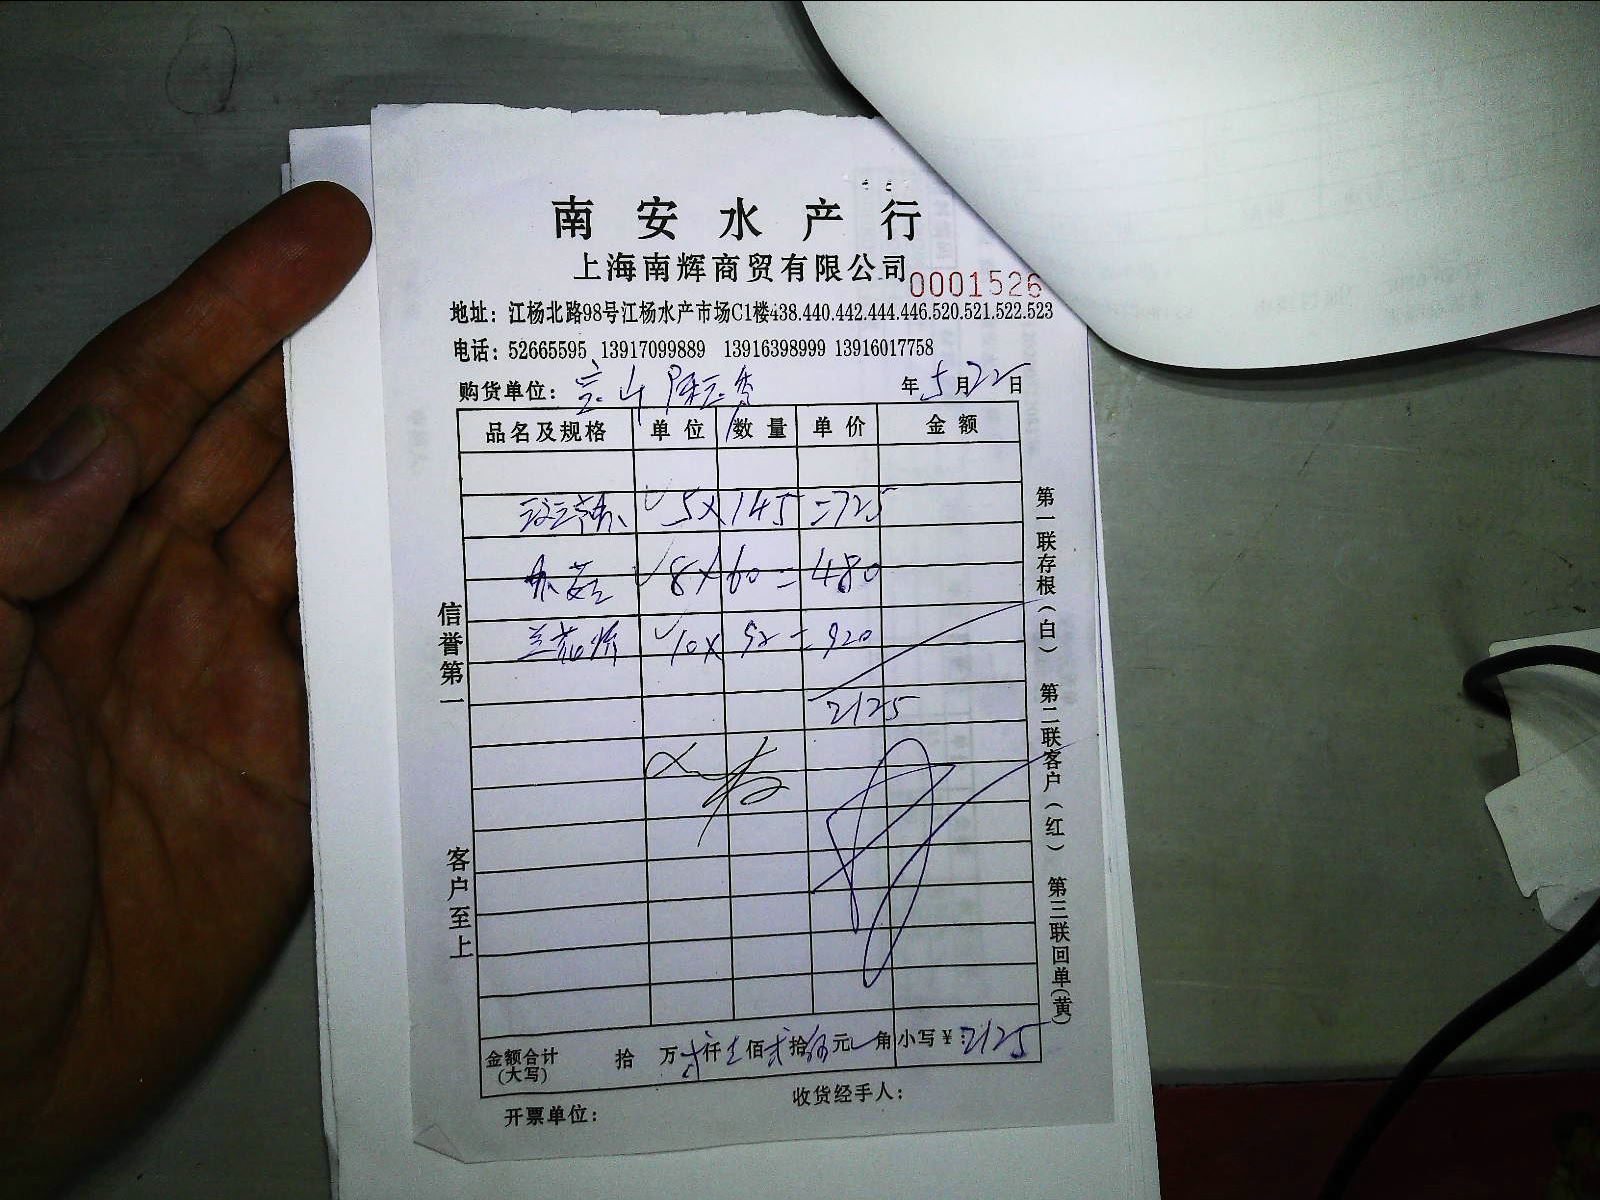 南安水产行
上海南辉商贸有限公司
0001526
地址：江杨北路98号江杨水产市场C1楼438.440.442.444.446.520.521.522.523
电话：52665595 13917099889 13916398999 13916017758
购货单位：
年5月22日
品名及规格 单位 数量 单价 金额
5×145=725
8×60=480
10×92=920
2125
金额合计(大写) 拾 万 贰仟壹佰贰拾伍元 角 小写￥：2125
开票单位：
收货经手人：
信誉第一
客户至上
第一联存根（白） 第二联客户（红） 第三联回单（黄）